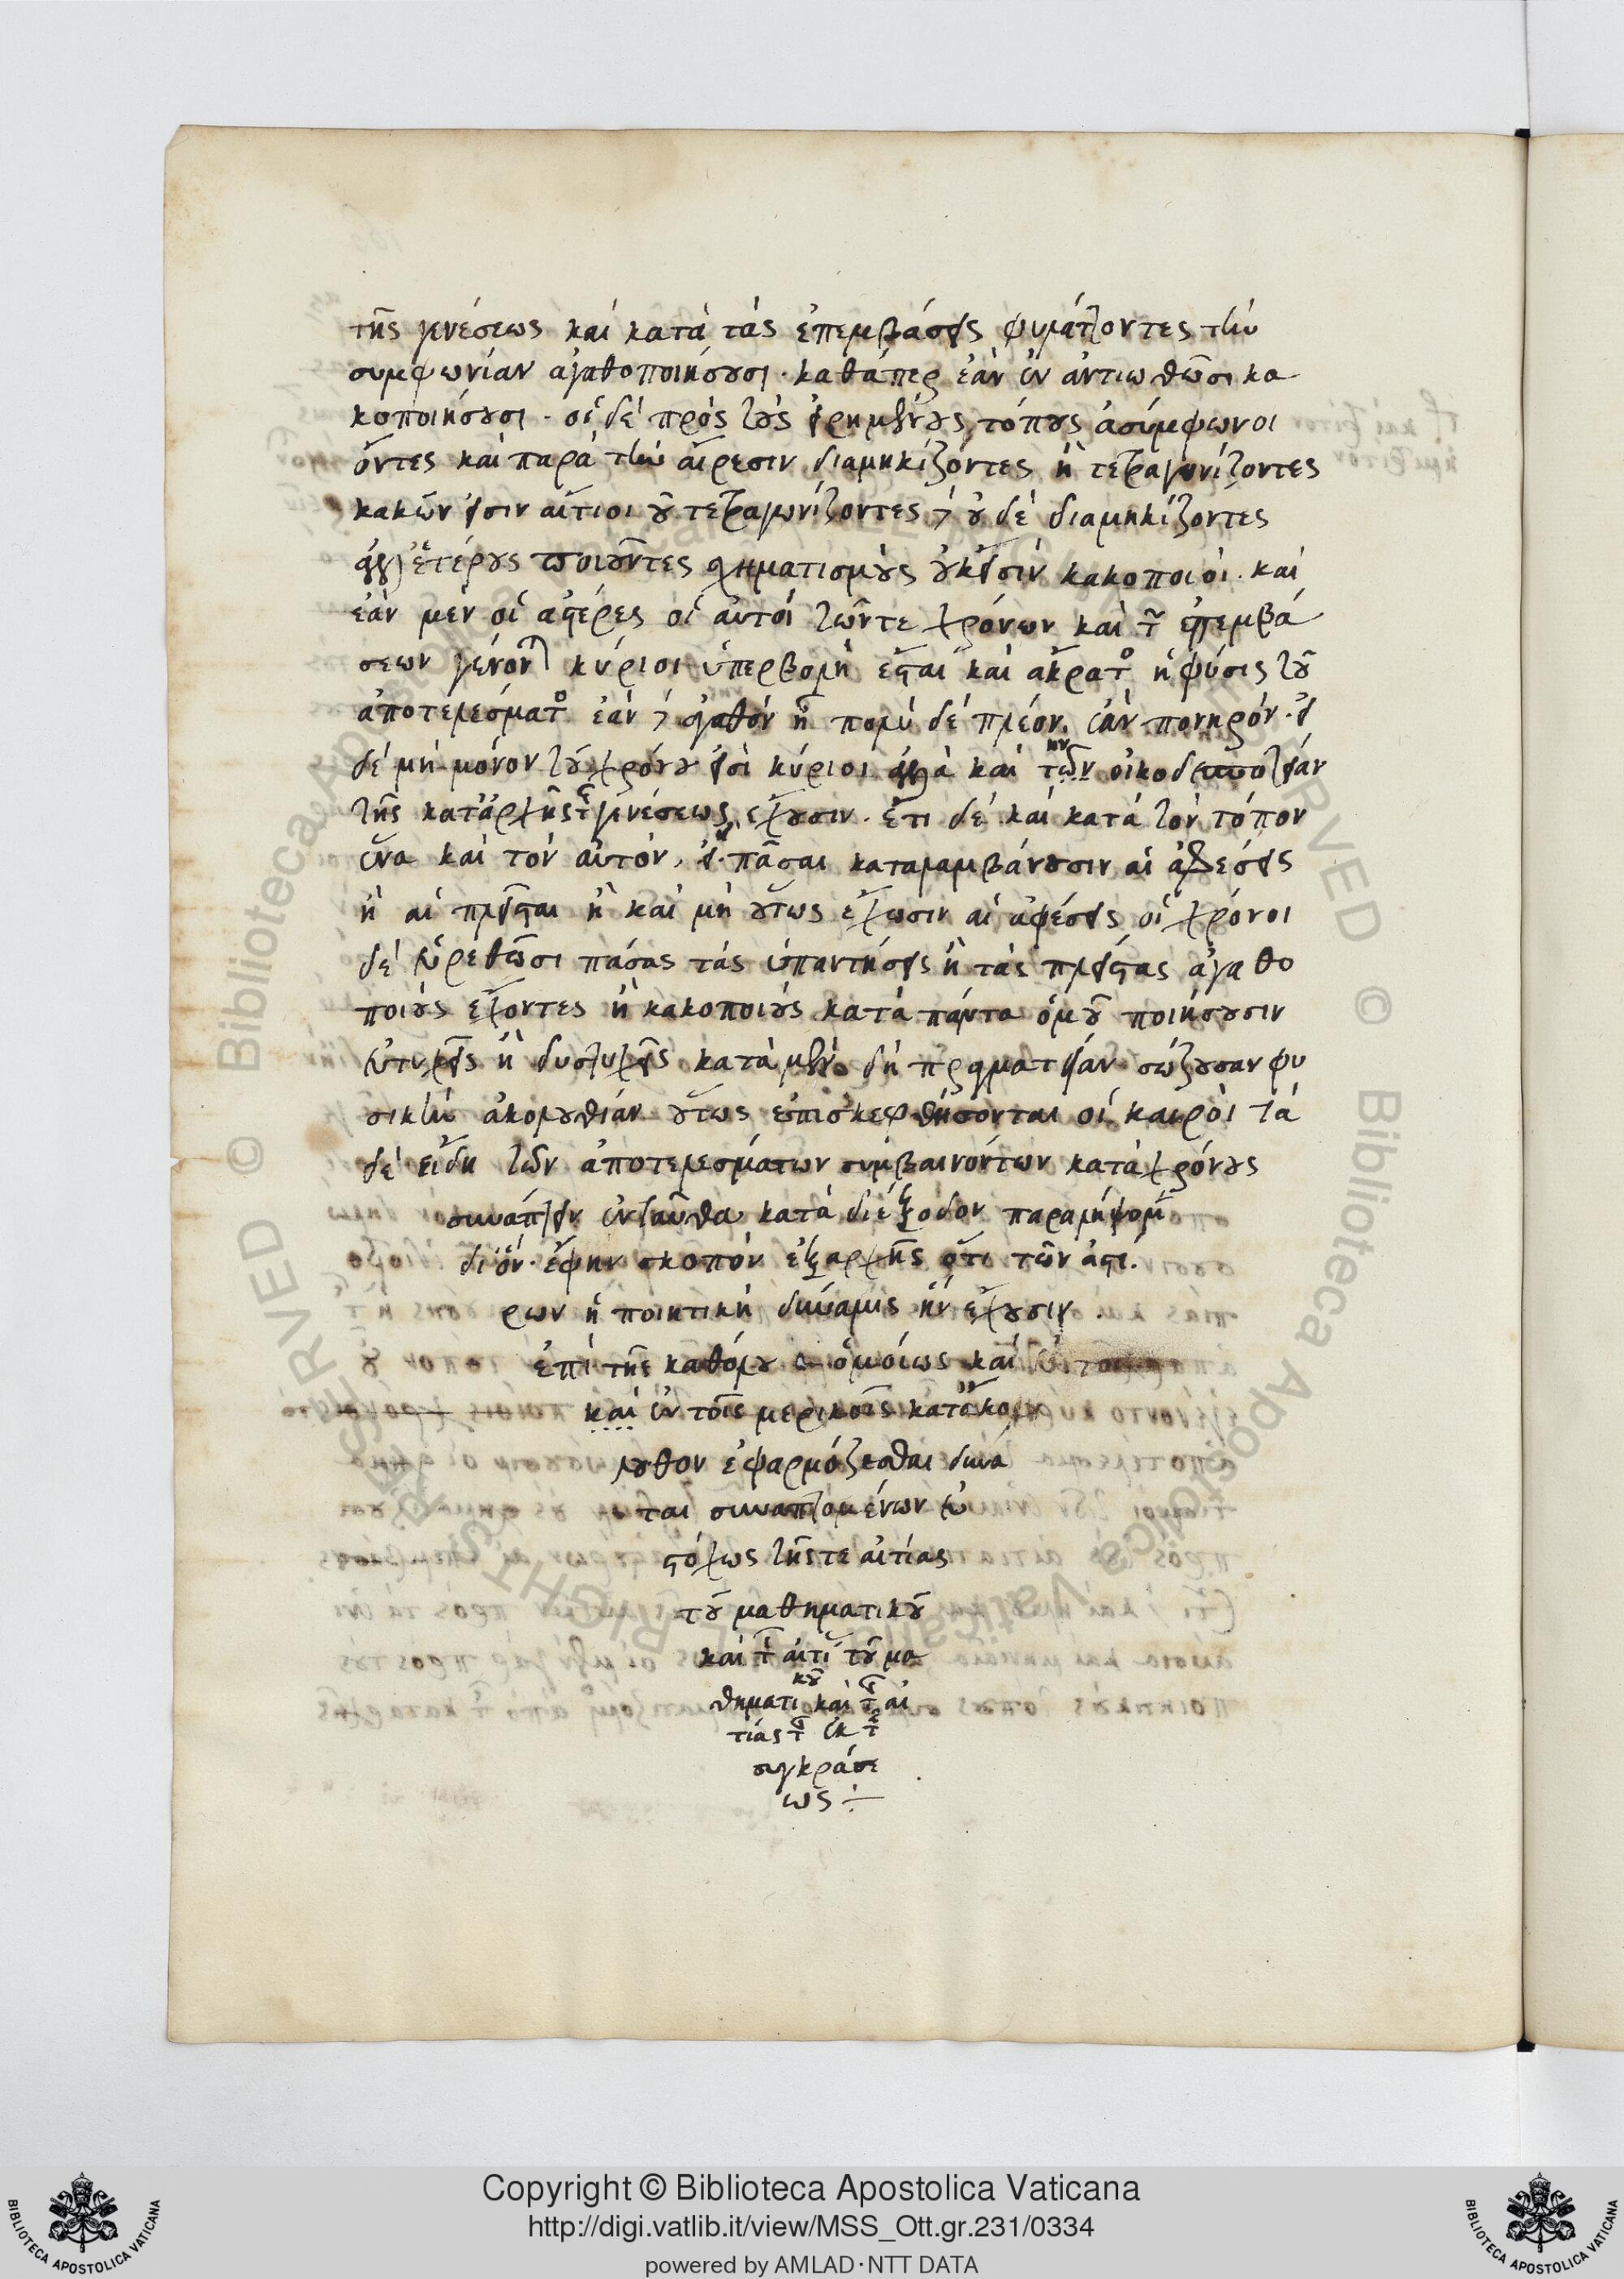 τῆς γενέσεως καὶ κατὰ τὰς ἐπεμβάσεις φυλάττοντες τὴν
συμφωνίαν ἀγαθοποιήσουσι · καθάπερ ἐὰν ἐναντιωθῶσι κα
κοποιήσουσι · οἱ δὲ πρὸς τοὺς εἰρημένους τόπους ἀσύμφωνοι
ὄντες καὶ παρὰ τὴν αἵρεσιν διαμηκίζοντες ἢ τετραγωνίζοντες
κακῶν εἰσιν αἴτιοι οὐ τετραγωνίζοντες δὲ οὐδὲ διαμηκίζοντες
ἀλλ' ἑτέρους ποιοῦντες σχηματισμοὺς οὔκ εἰσιν κακοποιοὶ · καὶ
ἐὰν μὲν οἱ ἀστέρες οἱ αὐτοὶ τῶν τε χρόνων καὶ τῶν ἐπεμβά
σεων γένονται κύριοι ὑπερβολὴ ἔσται καὶ ἄκρατος ἡ φύσις τοῦ
ἀποτελέσματος ἐάν τε ἀγαθὸν ᾖ πολὺ δὲ πλέον ἐὰν πονηρόν · εἰ
δὲ μὴ μόνον τοῦ χρόνου εἰσὶ κύριοι ἀλλὰ καὶ τὴν οἰκοδεσποτείαν
τῆς κατἀρχῆς τῆς γενέσεως ἔχουσιν · ἔτι δὲ καὶ κατὰ τὸν τόπον
ἕνα καὶ τὸν αὐτόν, εἰ πᾶσαι καταλαμβάνουσιν αἱ ἀφέσεις
ἢ αἱ πλεῖσται ἢ καὶ μὴ οὕτως ἔχωσιν αἱ ἀφέσεις οἱ χρόνοι
δὲ εὑρεθῶσι πάσας τὰς ὑπαντήσεις ἢ τὰς πλείστας ἀγαθο
ποιοὺς ἔχοντες ἢ κακοποιοὺς κατὰ πάντα ὁμοῦ ποιήσουσιν
εὐτυχεῖς ἢ δυστυχεῖς κατὰ μὲν δὴ πραγματείαν σώζουσαν φυ
σικὴν ἀκολουθίαν οὕτως ἐπισκεφθήσονται οἱ καιροὶ τὰ
δὲ εἴδη τῶν ἀποτελεσμάτων συμβαινόντων κατὰ χρόνους
συνάπτειν ἐνταῦθα κατὰ διέξοδον παραληψομ
δι' ὃν ἔφην σκοπὸν ἐξαρχῆς ὅτι τῶν ἀστέ
ρων ἡ ποιητικὴ δύναμις ἣν ἔχουσιν
ἐπὶ τῆς καθόλου ὁμοίως καὶ
καὶ ἐν τοῖς μερικοῖς κατἀκολ
λουθον ἐφαρμόζεσθαι δύνα
ται συναπτομένων εὐ
στόχως τῆς τε αἰτίας
τοῦ μαθηματικοῦ
καὶ τῆς αἰτί τοῦ μα
θηματικοῦ καὶ τῆς αἰ
τίας τῆς ἐκ τῆς
συγκράσε
ως ÷
Copyright © Biblioteca Apostolica Vaticana
http://digi.vatlib.it/view/MSS_Ott.gr.231/0334
powered by AMLAD·NTT DATA
BIBLIOTECA APOSTOLICA VATICANA
BIBLIOTECA APOSTOLICA VATICANA